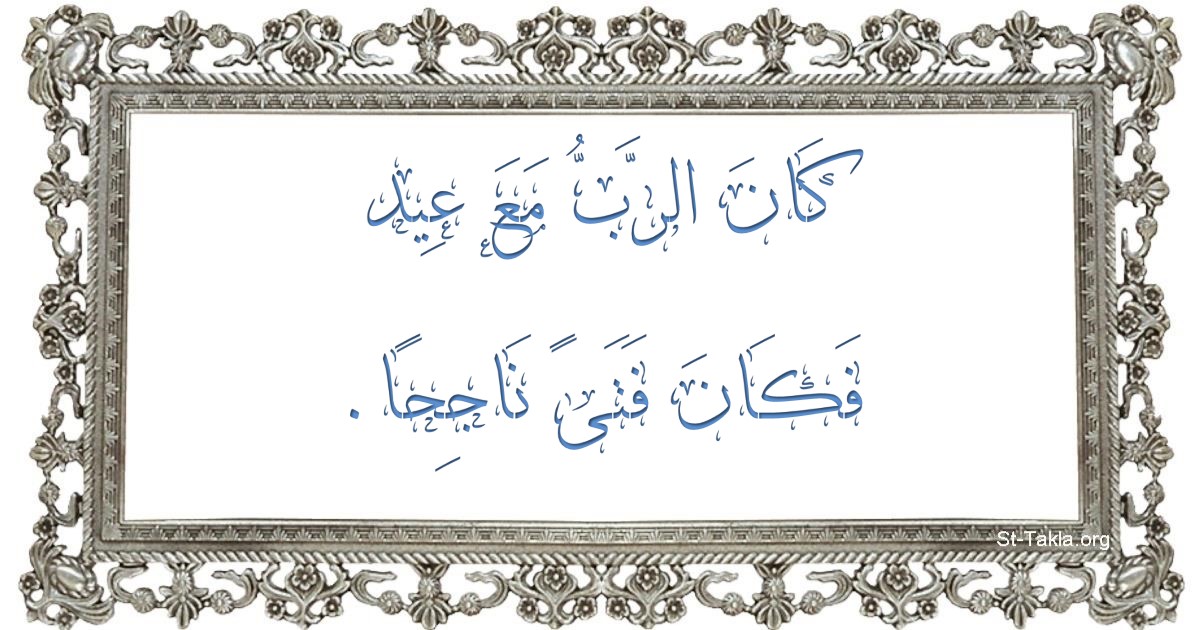 كَانَ الرَّبُّ مَعَ عِيد
فَكَانَ فَتَىً نَاجِحًا .
St-Takla.org